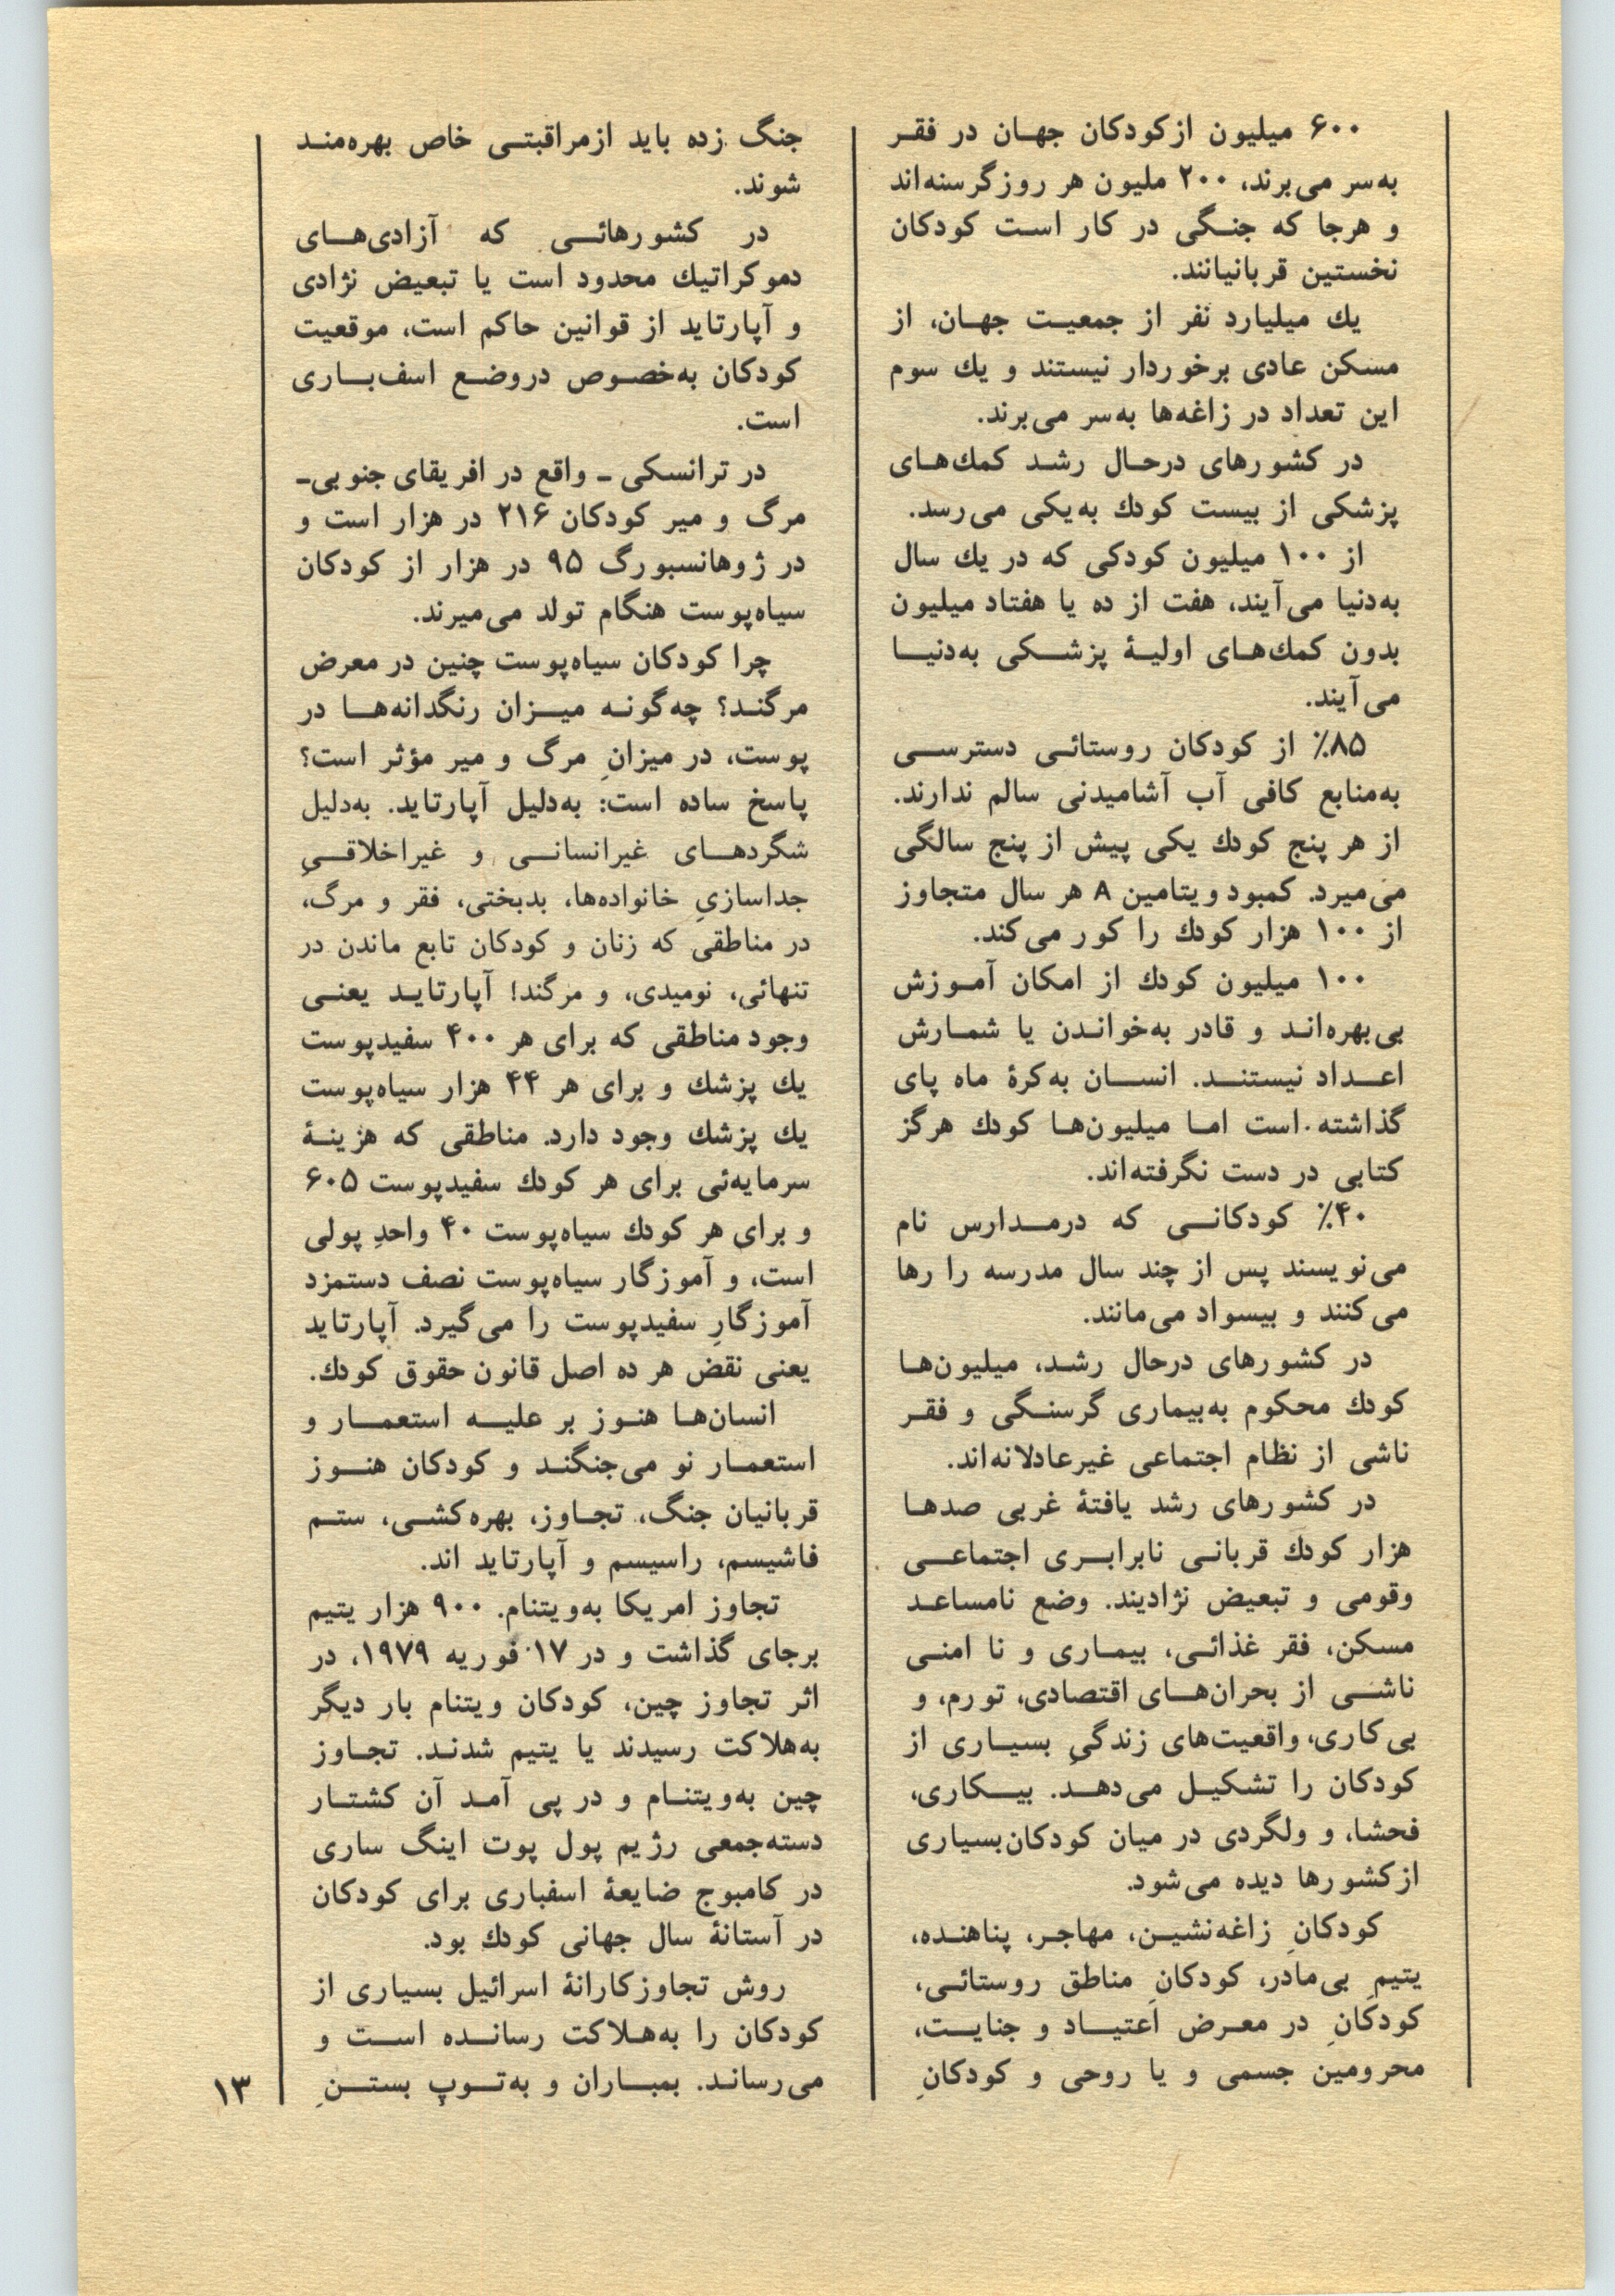 ۶۰۰ میلیون از کودکان جهان در فقر
به‌سر می‌برند، ۲۰۰ ملیون هر روز گرسنه‌اند
و هرجا که جنگی در کار است کودکان
نخستین قربانیانند.
یك میلیارد نفر از جمعیت جهان، از
مسکن عادی برخوردار نیستند و یك سوم
این تعداد در زاغه‌ها به‌سر می‌برند.
در کشورهای درحال رشد کمك‌های
پزشکی از بیست کودك به‌یکی می‌رسد.
از ۱۰۰ میلیون کودکی که در یك سال
به‌دنیا می‌آیند، هفت از ده یا هفتاد میلیون
بدون کمك‌های اولیهٔ پزشکی به‌دنیا
می‌آیند.
۸۵٪ از کودکان روستائی دسترسی
به‌منابع کافی آب آشامیدنی سالم ندارند.
از هر پنج کودك یکی پیش از پنج سالگی
می‌میرد. کمبود ویتامین A هر سال متجاوز
از ۱۰۰ هزار کودك را کور می‌کند.
۱۰۰ میلیون کودك از امکان آموزش
بی‌بهره‌اند و قادر به‌خواندن یا شمارش
اعداد نیستند. انسان به‌کرهٔ ماه پای
گذاشته است اما میلیون‌ها کودك هرگز
کتابی در دست نگرفته‌اند.
۴۰٪ کودکانی که درمدارس نام
می‌نویسند پس از چند سال مدرسه را رها
می‌کنند و بیسواد می‌مانند.
در کشورهای درحال رشد، میلیون‌ها
کودك محکوم به‌بیماری گرسنگی و فقر
ناشی از نظام اجتماعی غیرعادلانه‌اند.
در کشورهای رشد یافتهٔ غربی صدها
هزار کودك قربانی نابرابری اجتماعی
وقومی و تبعیض نژادیند. وضع نامساعد
مسکن، فقر غذائی، بیماری و نا امنی
ناشی از بحران‌های اقتصادی، تورم، و
بی‌کاری، واقعیت‌های زندگیِ بسیاری از
کودکان را تشکیل می‌دهد. بیکاری،
فحشا، و ولگردی در میان کودکان‌بسیاری
ازکشورها دیده می‌شود.
کودکانِ زاغه‌نشین، مهاجر، پناهنده،
یتیم بی‌مادر، کودکانِ مناطق روستائی،
کودکانِ در معرض اعتیاد و جنایت،
محرومین جسمی و یا روحی و کودکانِ
جنگ زده باید ازمراقبتی خاص بهره‌مند
شوند.
در کشورهائی که آزادی‌های
دموکراتیك محدود است یا تبعیض نژادی
و آپارتاید از قوانین حاکم است، موقعیت
کودکان به‌خصوص دروضع اسف‌باری
است.
در ترانسکی ـ واقع در افریقای جنوبی‌ـ
مرگ و میر کودکان ۲۱۶ در هزار است و
در ژوهانسبورگ ۹۵ در هزار از کودکان
سیاه‌پوست هنگام تولد می‌میرند.
چرا کودکان سیاه‌پوست چنین در معرض
مرگند؟ چه‌گونه میزان رنگدانه‌ها در
پوست، در میزانِ مرگ و میر مؤثر است؟
پاسخ ساده است: به‌دلیل آپارتاید. به‌دلیل
شگردهای غیرانسانی و غیراخلاقیِ
جداسازیِ خانواده‌ها، بدبختی، فقر و مرگ،
در مناطقی که زنان و کودکان تابع ماندن در
تنهائی، نومیدی، و مرگند! آپارتاید یعنی
وجود مناطقی که برای هر ۴۰۰ سفیدپوست
یك پزشك و برای هر ۴۴ هزار سیاه‌پوست
یك پزشك وجود دارد. مناطقی که هزینهٔ
سرمایه‌ئی برای هر کودك سفیدپوست ۶۰۵
و برای هر کودك سیاه‌پوست ۴۰ واحدِ پولی
است، و آموزگار سیاه‌پوست نصف دستمزد
آموزگارِ سفیدپوست را می‌گیرد. آپارتاید
یعنی نقض هر ده اصل قانون حقوق کودك.
انسان‌ها هنوز بر علیه استعمار و
استعمار نو می‌جنگند و کودکان هنوز
قربانیان جنگ، تجاوز، بهره‌کشی، ستم
فاشیسم، راسیسم و آپارتاید اند.
تجاوز امریکا به‌ویتنام. ۹۰۰ هزار یتیم
برجای گذاشت و در ۱۷ فوریه ۱۹۷۹، در
اثر تجاوز چین، کودکان ویتنام بار دیگر
به‌هلاکت رسیدند یا یتیم شدند. تجاوز
چین به‌ویتنام و در پی آمد آن کشتار
دسته‌جمعی رژیم پول پوت اینگ ساری
در کامبوج ضایعهٔ اسفباری برای کودکان
در آستانهٔ سال جهانی کودك بود.
روش تجاوزکارانهٔ اسرائیل بسیاری از
کودکان را به‌هلاکت رسانده است و
می‌رساند. بمباران و به‌توپ بستنِ
۱۳